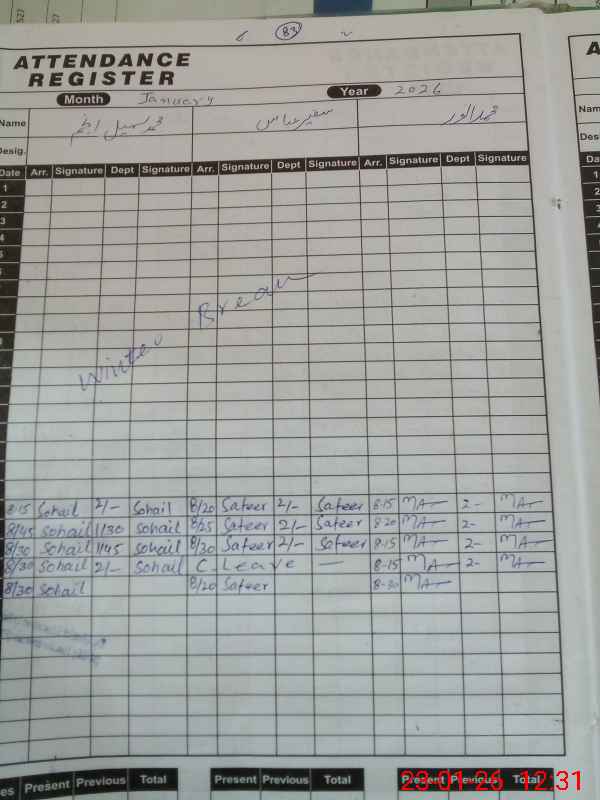 83
ATTENDANCE
REGISTER
Month January Year 2026
Name محمد سہیل انجم سفیر عباس محمد انور
Desig.
Date Arr. Signature Dept Signature Arr. Signature Dept Signature Arr. Signature Dept Signature
1
2
3
4
5
6
Winter Break
8-15 Sohail 2/- Sohail 8/20 Safeer 2/- Safeer 8-15 MA 2- MA
8/45 Sohail 1/30 Sohail 8/25 Safeer 2/- Safeer 8-20 MA 2- MA
8/30 Sohail 1/45 Sohail 8/30 Safeer 2/- Safeer 8-15 MA 2- MA
8/30 Sohail 2/- Sohail C. Leave — 8-15 MA 2- MA
8/30 Sohail 8/20 Safeer 8-30 MA
Present Previous Total Present Previous Total Present Previous Total
23-01-26 12:31